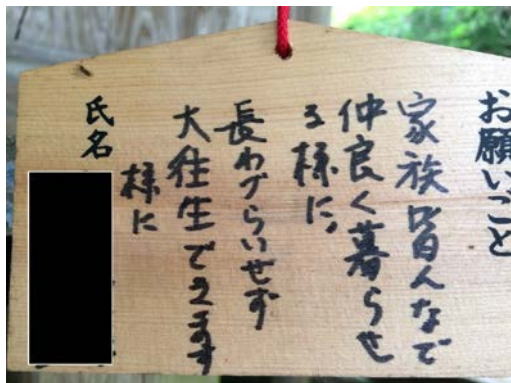 お願いごと
家族皆んなで
仲良く暮らせ
る様に、
長わづらいせず
大往生できます
様に
氏名